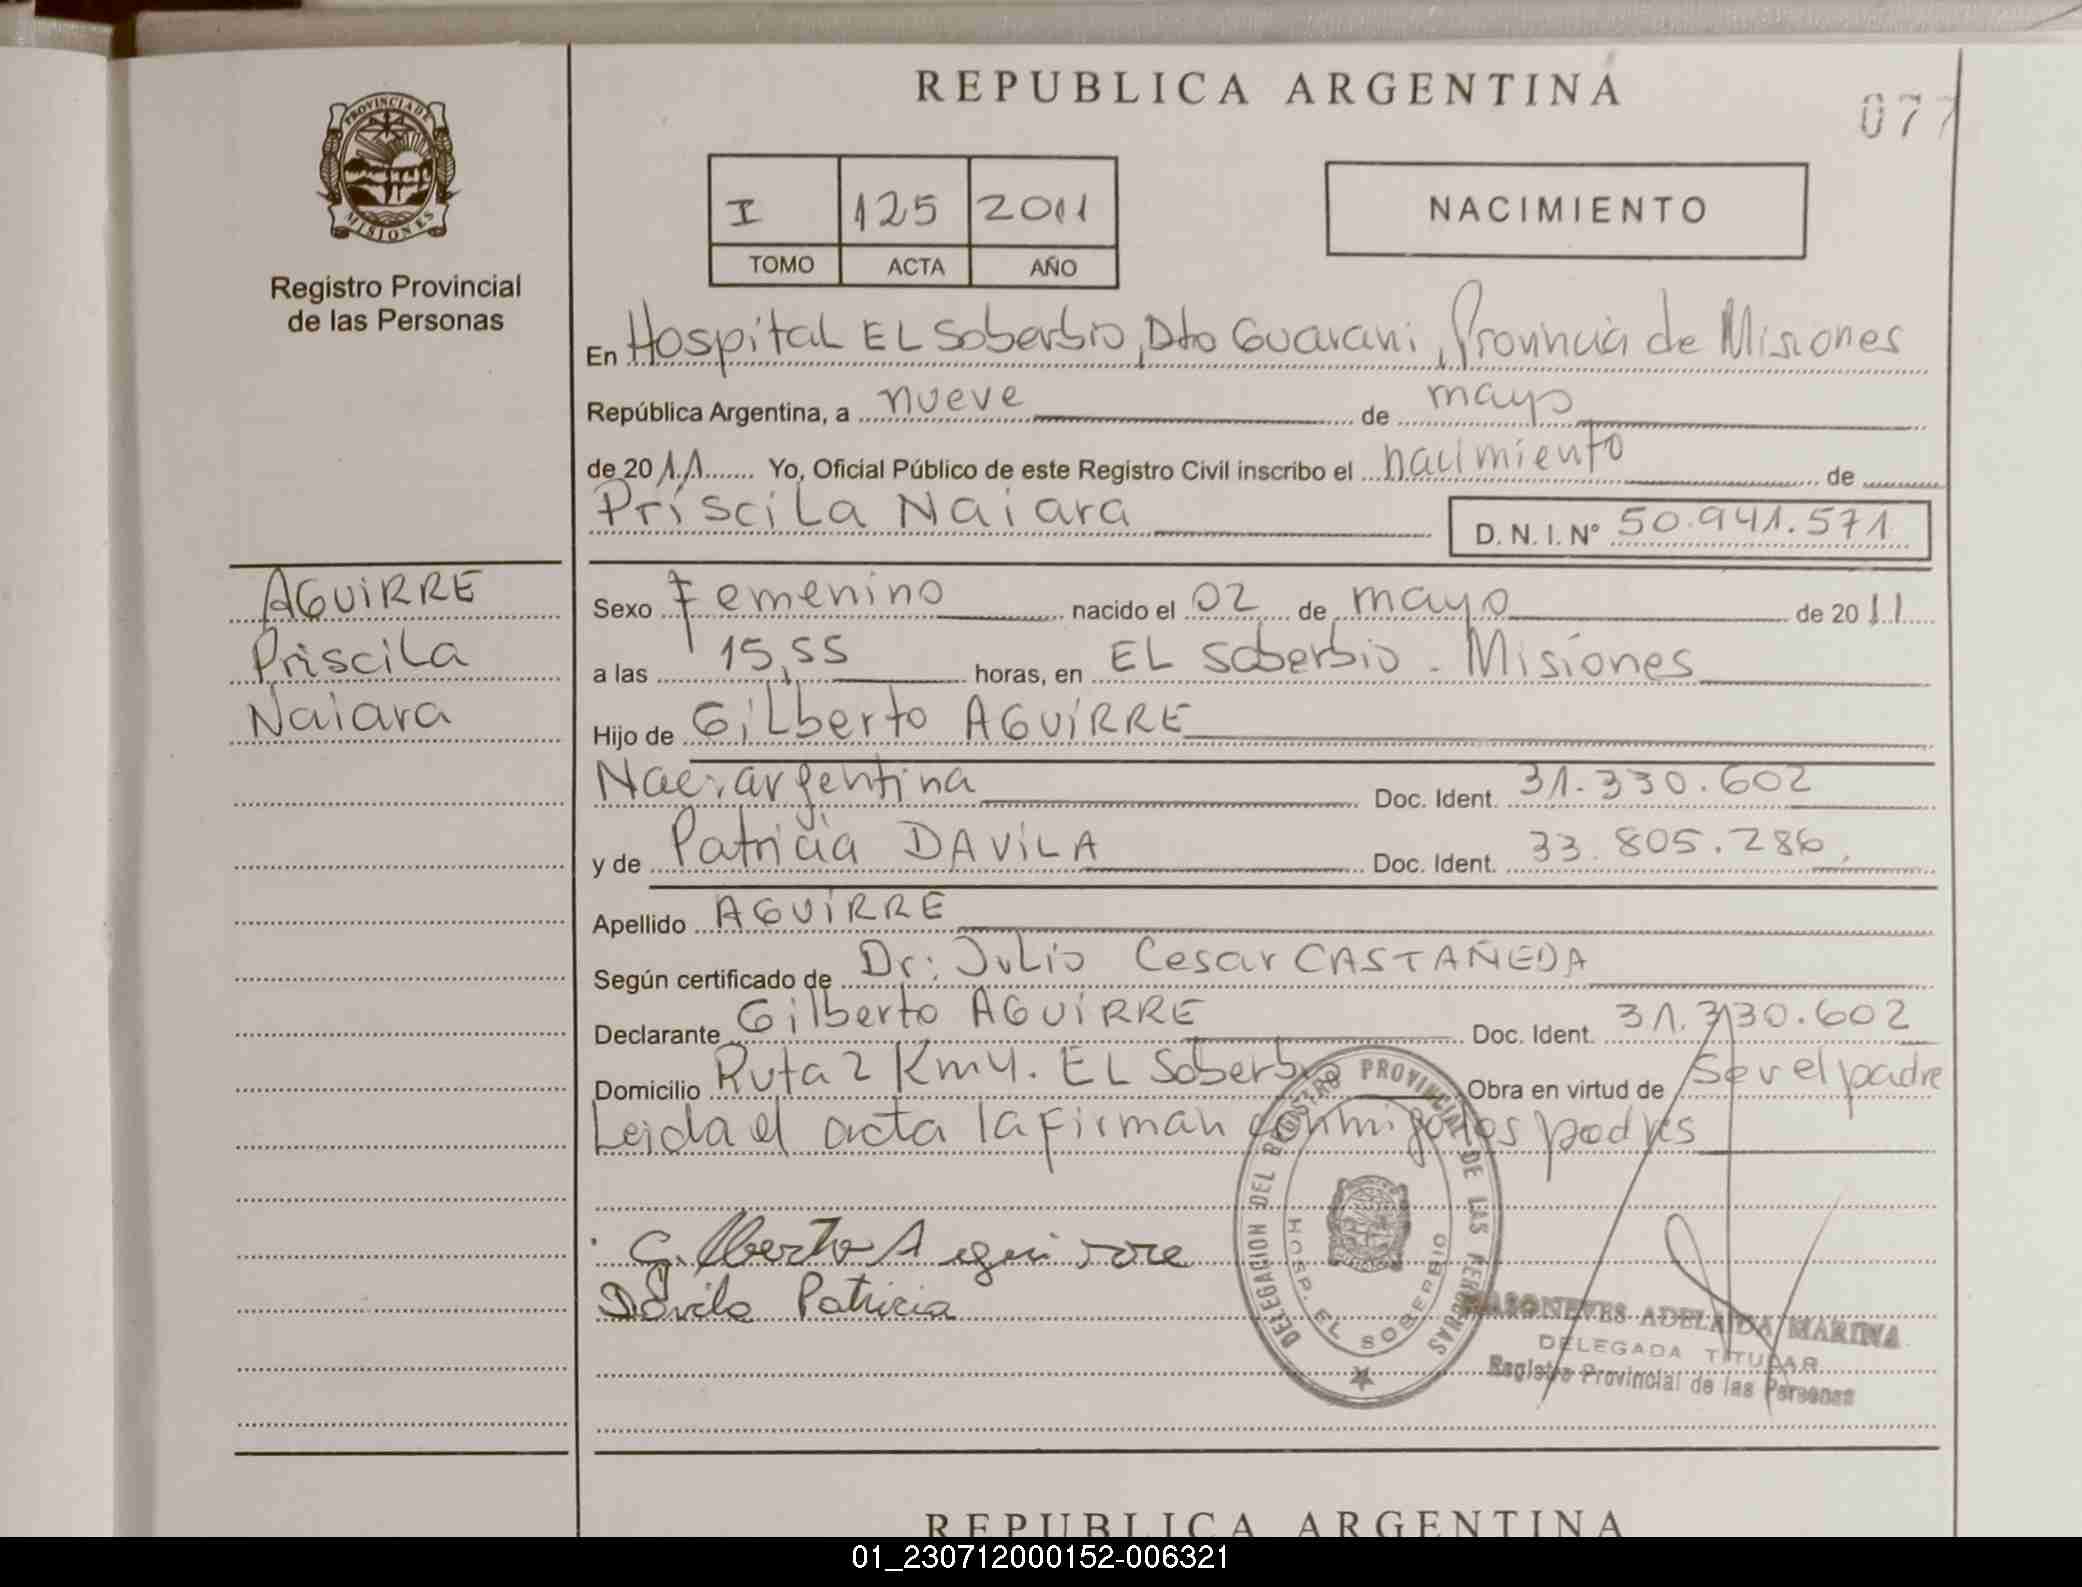 REPUBLICA ARGENTINA
077
PROVINCIA DE
MISIONES
Registro Provincial
de las Personas
I 125 2011
TOMO ACTA AÑO
NACIMIENTO
En Hospital EL Soberbio, Dto Guarani, Provincia de Misiones
República Argentina, a nueve de mayo
de 2011 Yo, Oficial Público de este Registro Civil inscribo el nacimiento de
Priscila Naiara D. N. I. Nº 50.941.571
AGUIRRE
Priscila
Naiara
Sexo Femenino nacido el 02 de mayo de 2011
a las 15,55 horas, en EL Soberbio - Misiones
Hijo de Gilberto AGUIRRE
Nac: argentina Doc. Ident. 31.330.602
y de Patricia DAVILA Doc. Ident. 33.805.286
Apellido AGUIRRE
Según certificado de Dr: Julio Cesar CASTAÑEDA
Declarante Gilberto AGUIRRE Doc. Ident. 31.330.602
Domicilio Ruta 2 Km 4. EL Soberbio Obra en virtud de Ser el padre
Leida el acta la firman conmigo los padres
Gilberto Aguirre
Davila Patricia
DELEGACION DEL REGISTRO PROVINCIAL DE LAS PERSONAS
HOSP. EL SOBERBIO
ADELAIDA MARINA
DELEGADA TITULAR
Registro Provincial de las Personas
REPUBLICA ARGENTINA
01_230712000152-006321